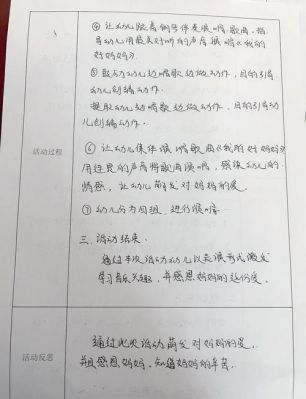 ④ 让幼儿跟着钢琴伴奏演唱歌曲，指
导幼儿用最美好听的声音演唱《我的
好妈妈》.
⑤ 鼓励幼儿边唱歌边做动作，目的引导
幼儿创编动作.
提醒幼儿边唱歌边做动作，目的引导幼
儿创编动作.
⑥ 让幼儿集体演唱歌曲《我的好妈妈》
用连贯的声音将歌曲演唱，感染幼儿的
情感，让幼儿萌发对妈妈的爱.
⑦ 幼儿分为四组，进行演唱.
活动过程
三. 活动结束.
通过本次活动幼儿以表演形式激发
学习音乐兴趣，并感恩妈妈的这份爱.
通过此次活动萌发对妈妈的爱.
并且感恩妈妈，知道妈妈的辛苦.
活动反思